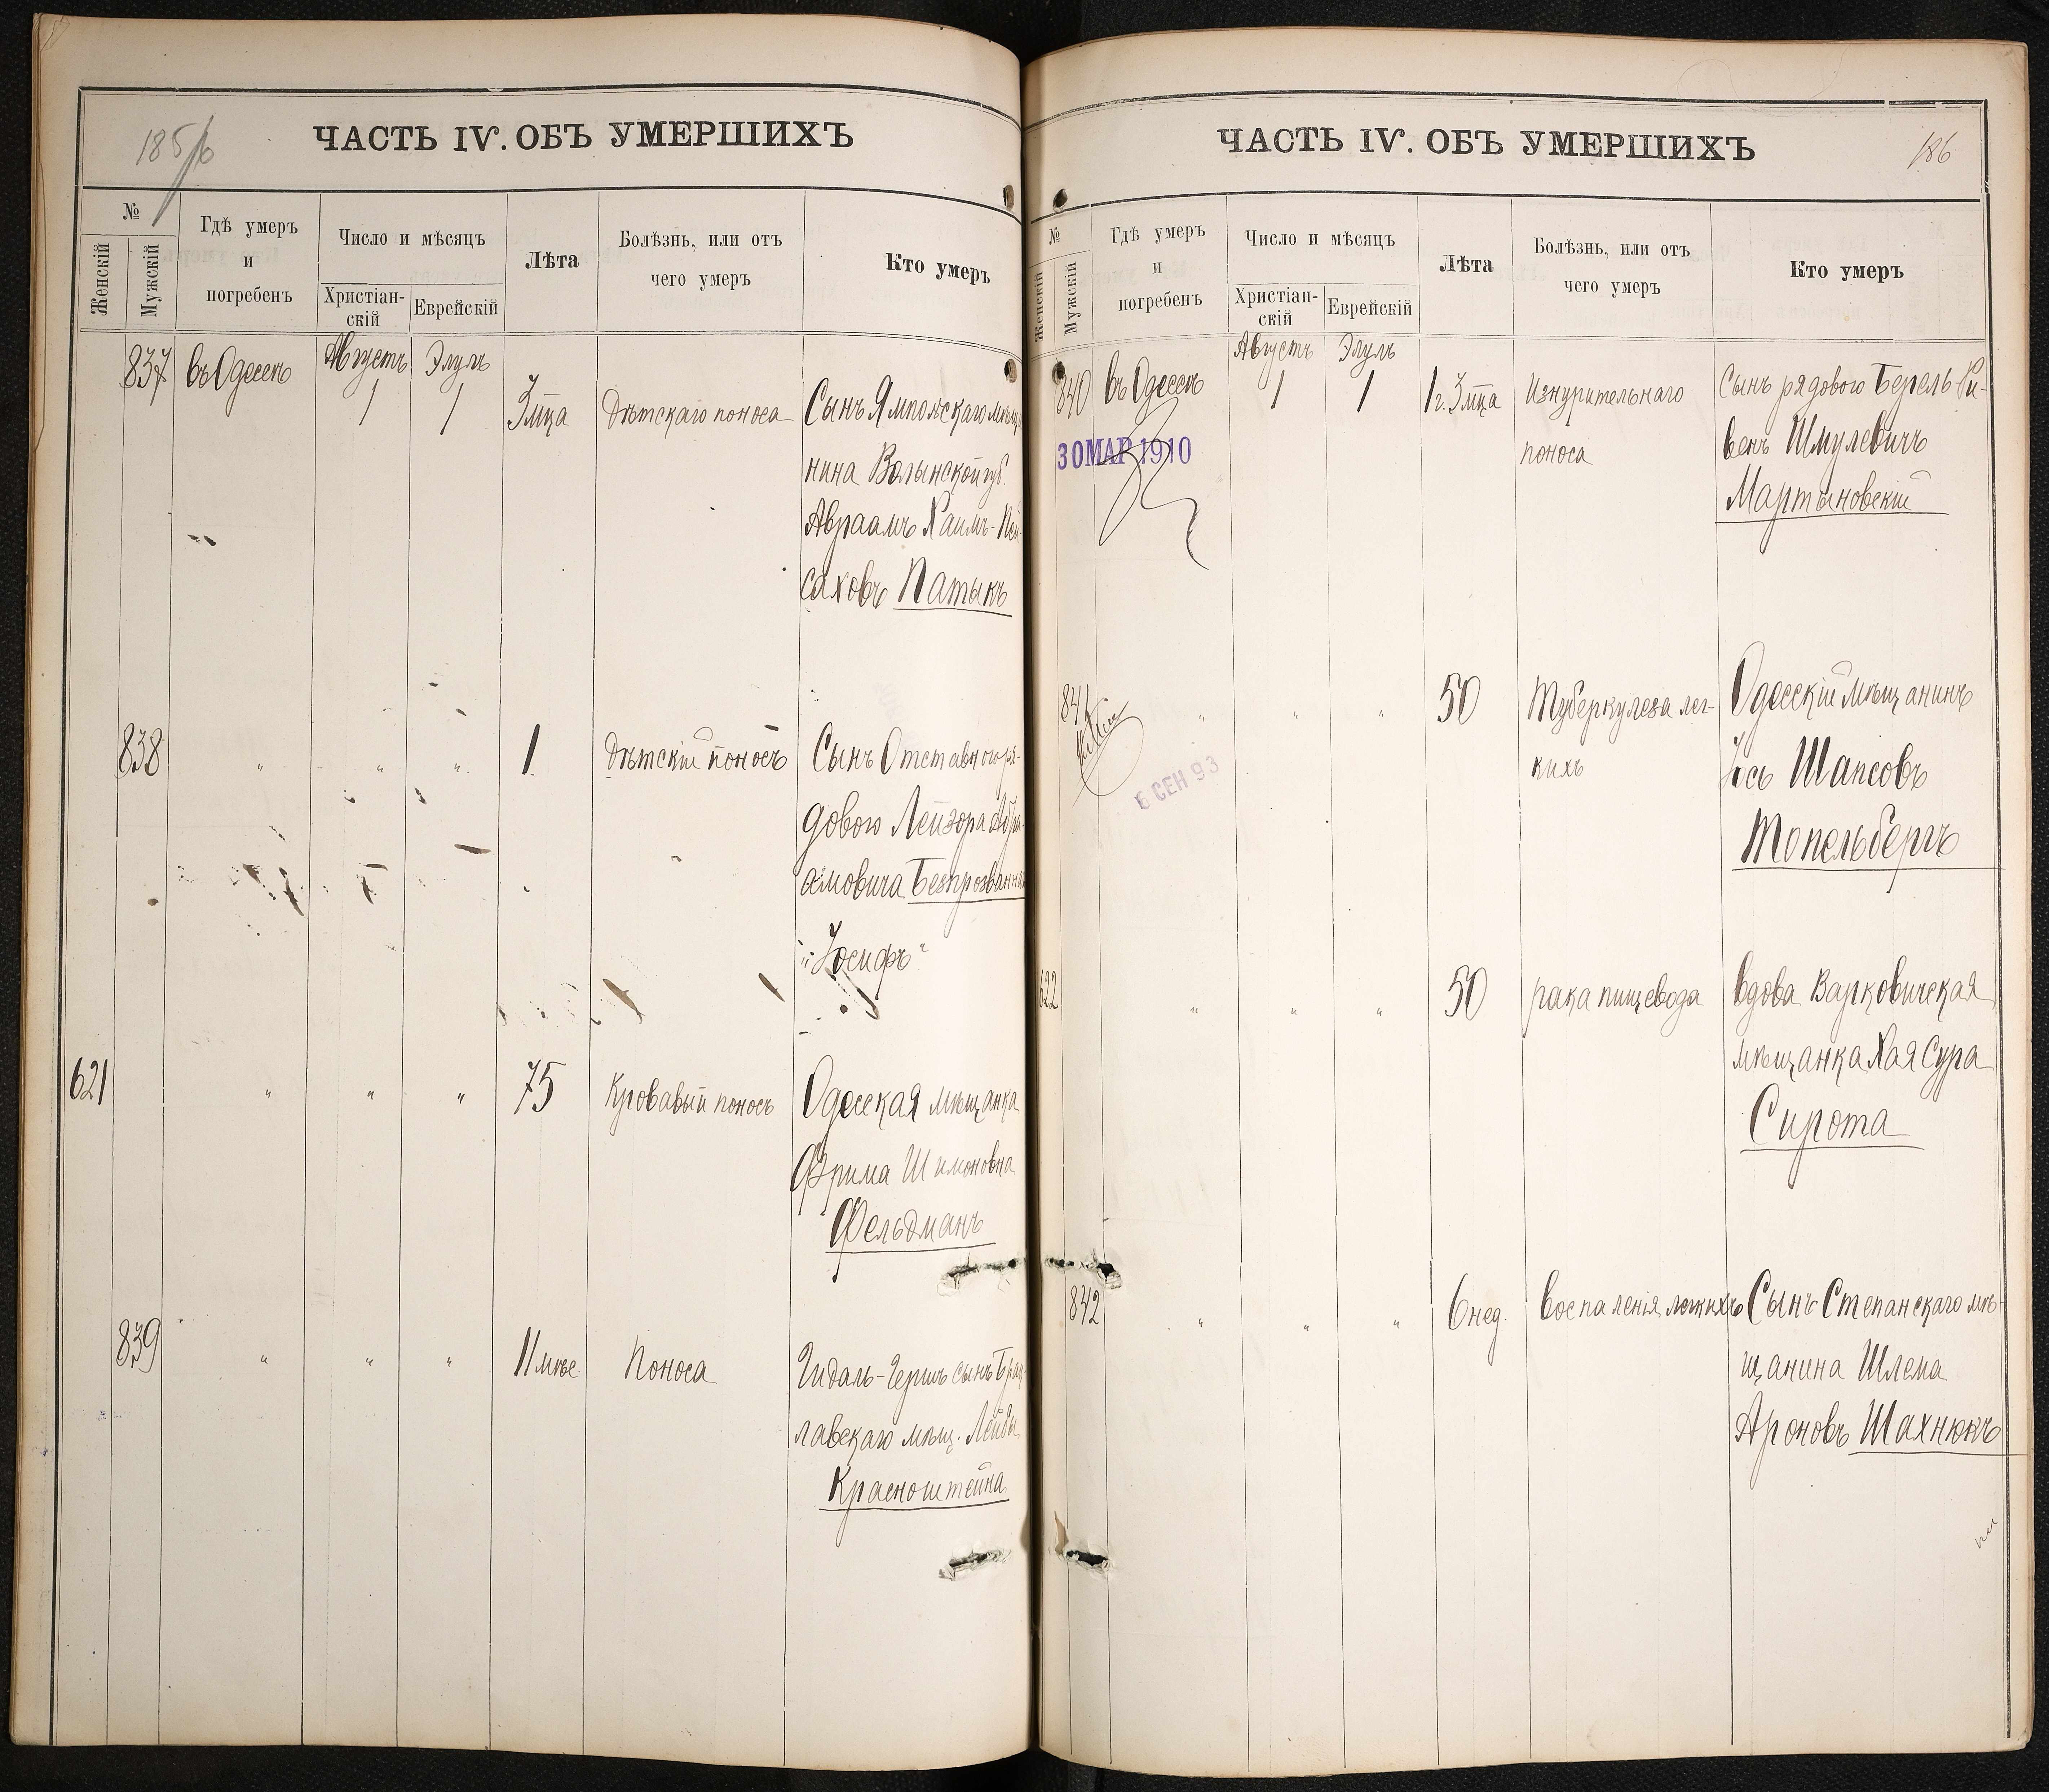 185/б
ЧАСТЬ IV. ОБЪ УМЕРШИХЪ
№
Женскій
Мужскій
Гдѣ умеръ
и
погребенъ
Число и мѣсяцъ
Христіан-
скій
Еврейскій
Лѣта
Болѣзнь, или отъ
чего умеръ
Кто умеръ
Августъ Элулъ
837 въ Одессѣ 1 1 3 мца Дѣтскаго поноса Сынъ Ямпольскаго мѣща
нина Волынской губ.
Авраамъ Хаимъ-Пей-
саховъ Патыкъ
838 " " " 1 Дѣтскій поносъ Сынъ Отставного ря-
дового Лейзора Абра-
амовича Безпрозванна
"Іосифъ"
621 " " " 75 Кровавый поносъ Одесская мѣщанка
Фрима Шимоновна
Фельдманъ
839 " " " 11 мѣс. Поноса Гидаль-Гершъ сынъ Брац-
лавскаго мѣщ. Лейбы
Красноштейна
ЧАСТЬ IV. ОБЪ УМЕРШИХЪ
186
№
Женскій
Мужскій
Гдѣ умеръ
и
погребенъ
Число и мѣсяцъ
Христіан-
скій
Еврейскій
Лѣта
Болѣзнь, или отъ
чего умеръ
Кто умеръ
Августъ Элулъ
840 въ Одессѣ 1 1 1 г. 3 мца Изнурительнаго Сынъ рядового Берель Ру-
30 МАР 1910
поноса венъ Шмулевичъ
Мартыновскій
841 " " " 50 Туберкулеза лег- Одесскій мѣщанинъ
кихъ Іось Шапсовъ
6 СЕН 93
Топельбергъ
622 " " " 50 рака пищевода вдова Варковичская
мѣщанка Хая Сура
Сирота
842 " " " 6 нед. воспаленія легкихъ Сынъ Степанскаго мѣ-
щанина Шлема
Ароновъ Шахнюкъ